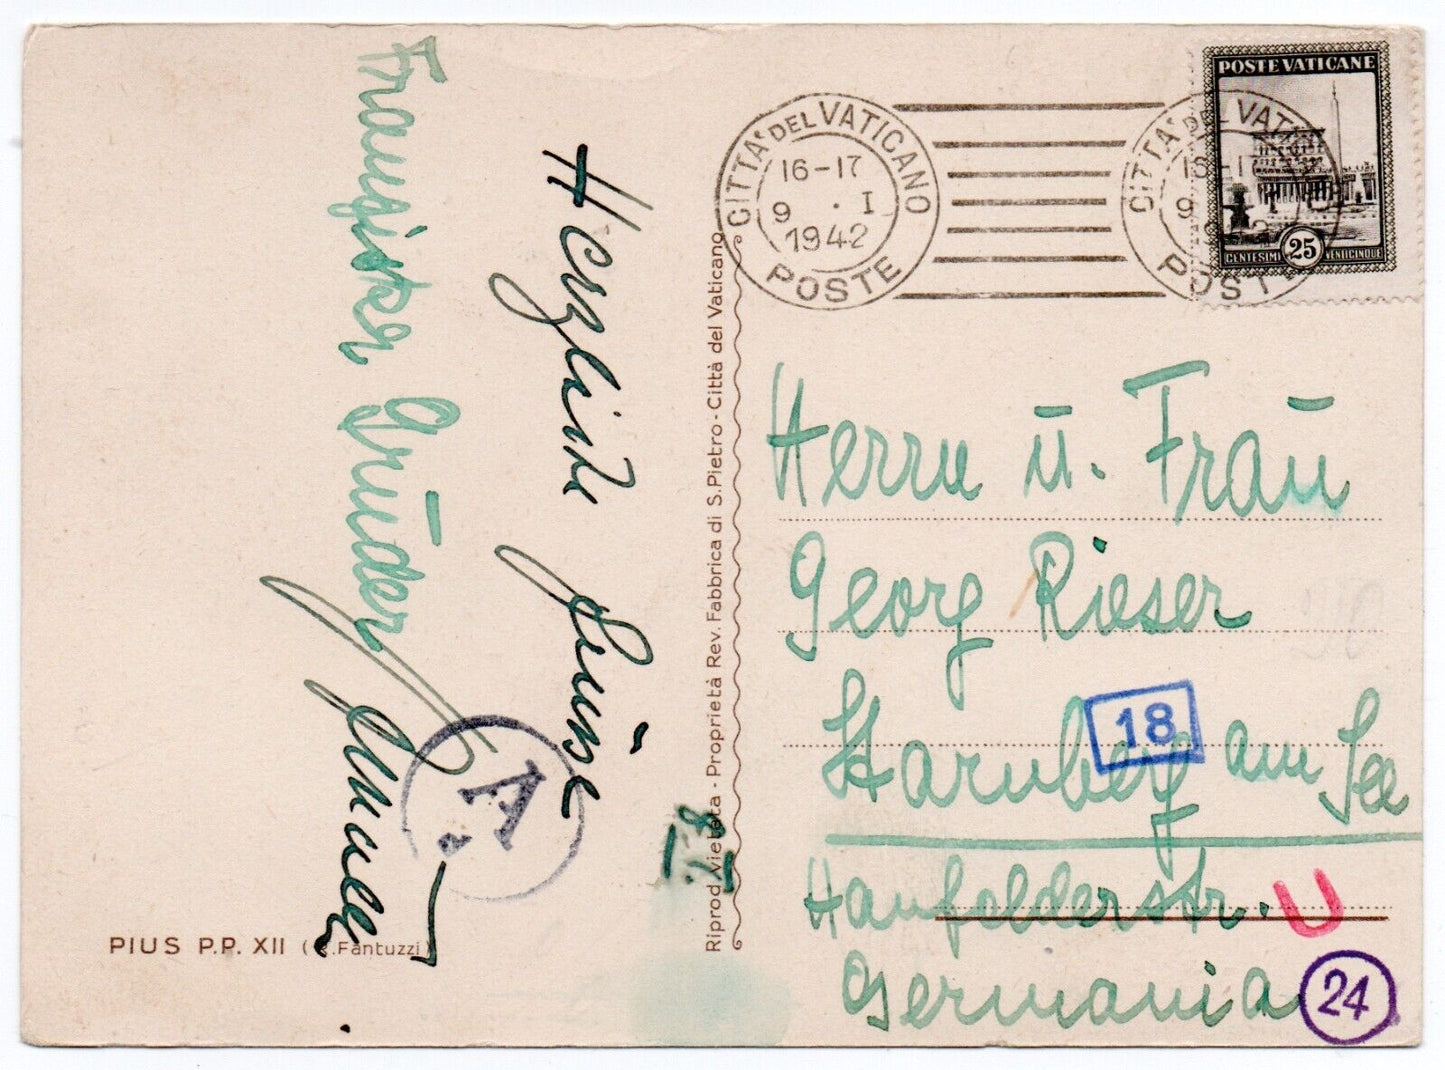 Herzliche Grüße
Franziska Gruder
8. I.
PIUS P.P. XII ( .Fantuzzi)
Riprod. vietata - Proprietà Rev. Fabbrica di S. Pietro - Città del Vaticano
CITTA' DEL VATICANO
16-17
9 . I
1942
POSTE
CITTA' DEL VATICANO
16-17
9
POSTE
POSTE VATICANE
CENTESIMI 25 VENTICINQUE
Herrn ū. Fraū
Georg Rieser
Starnberg am See
Hanfelderstr.
Germania
18
A
U
24